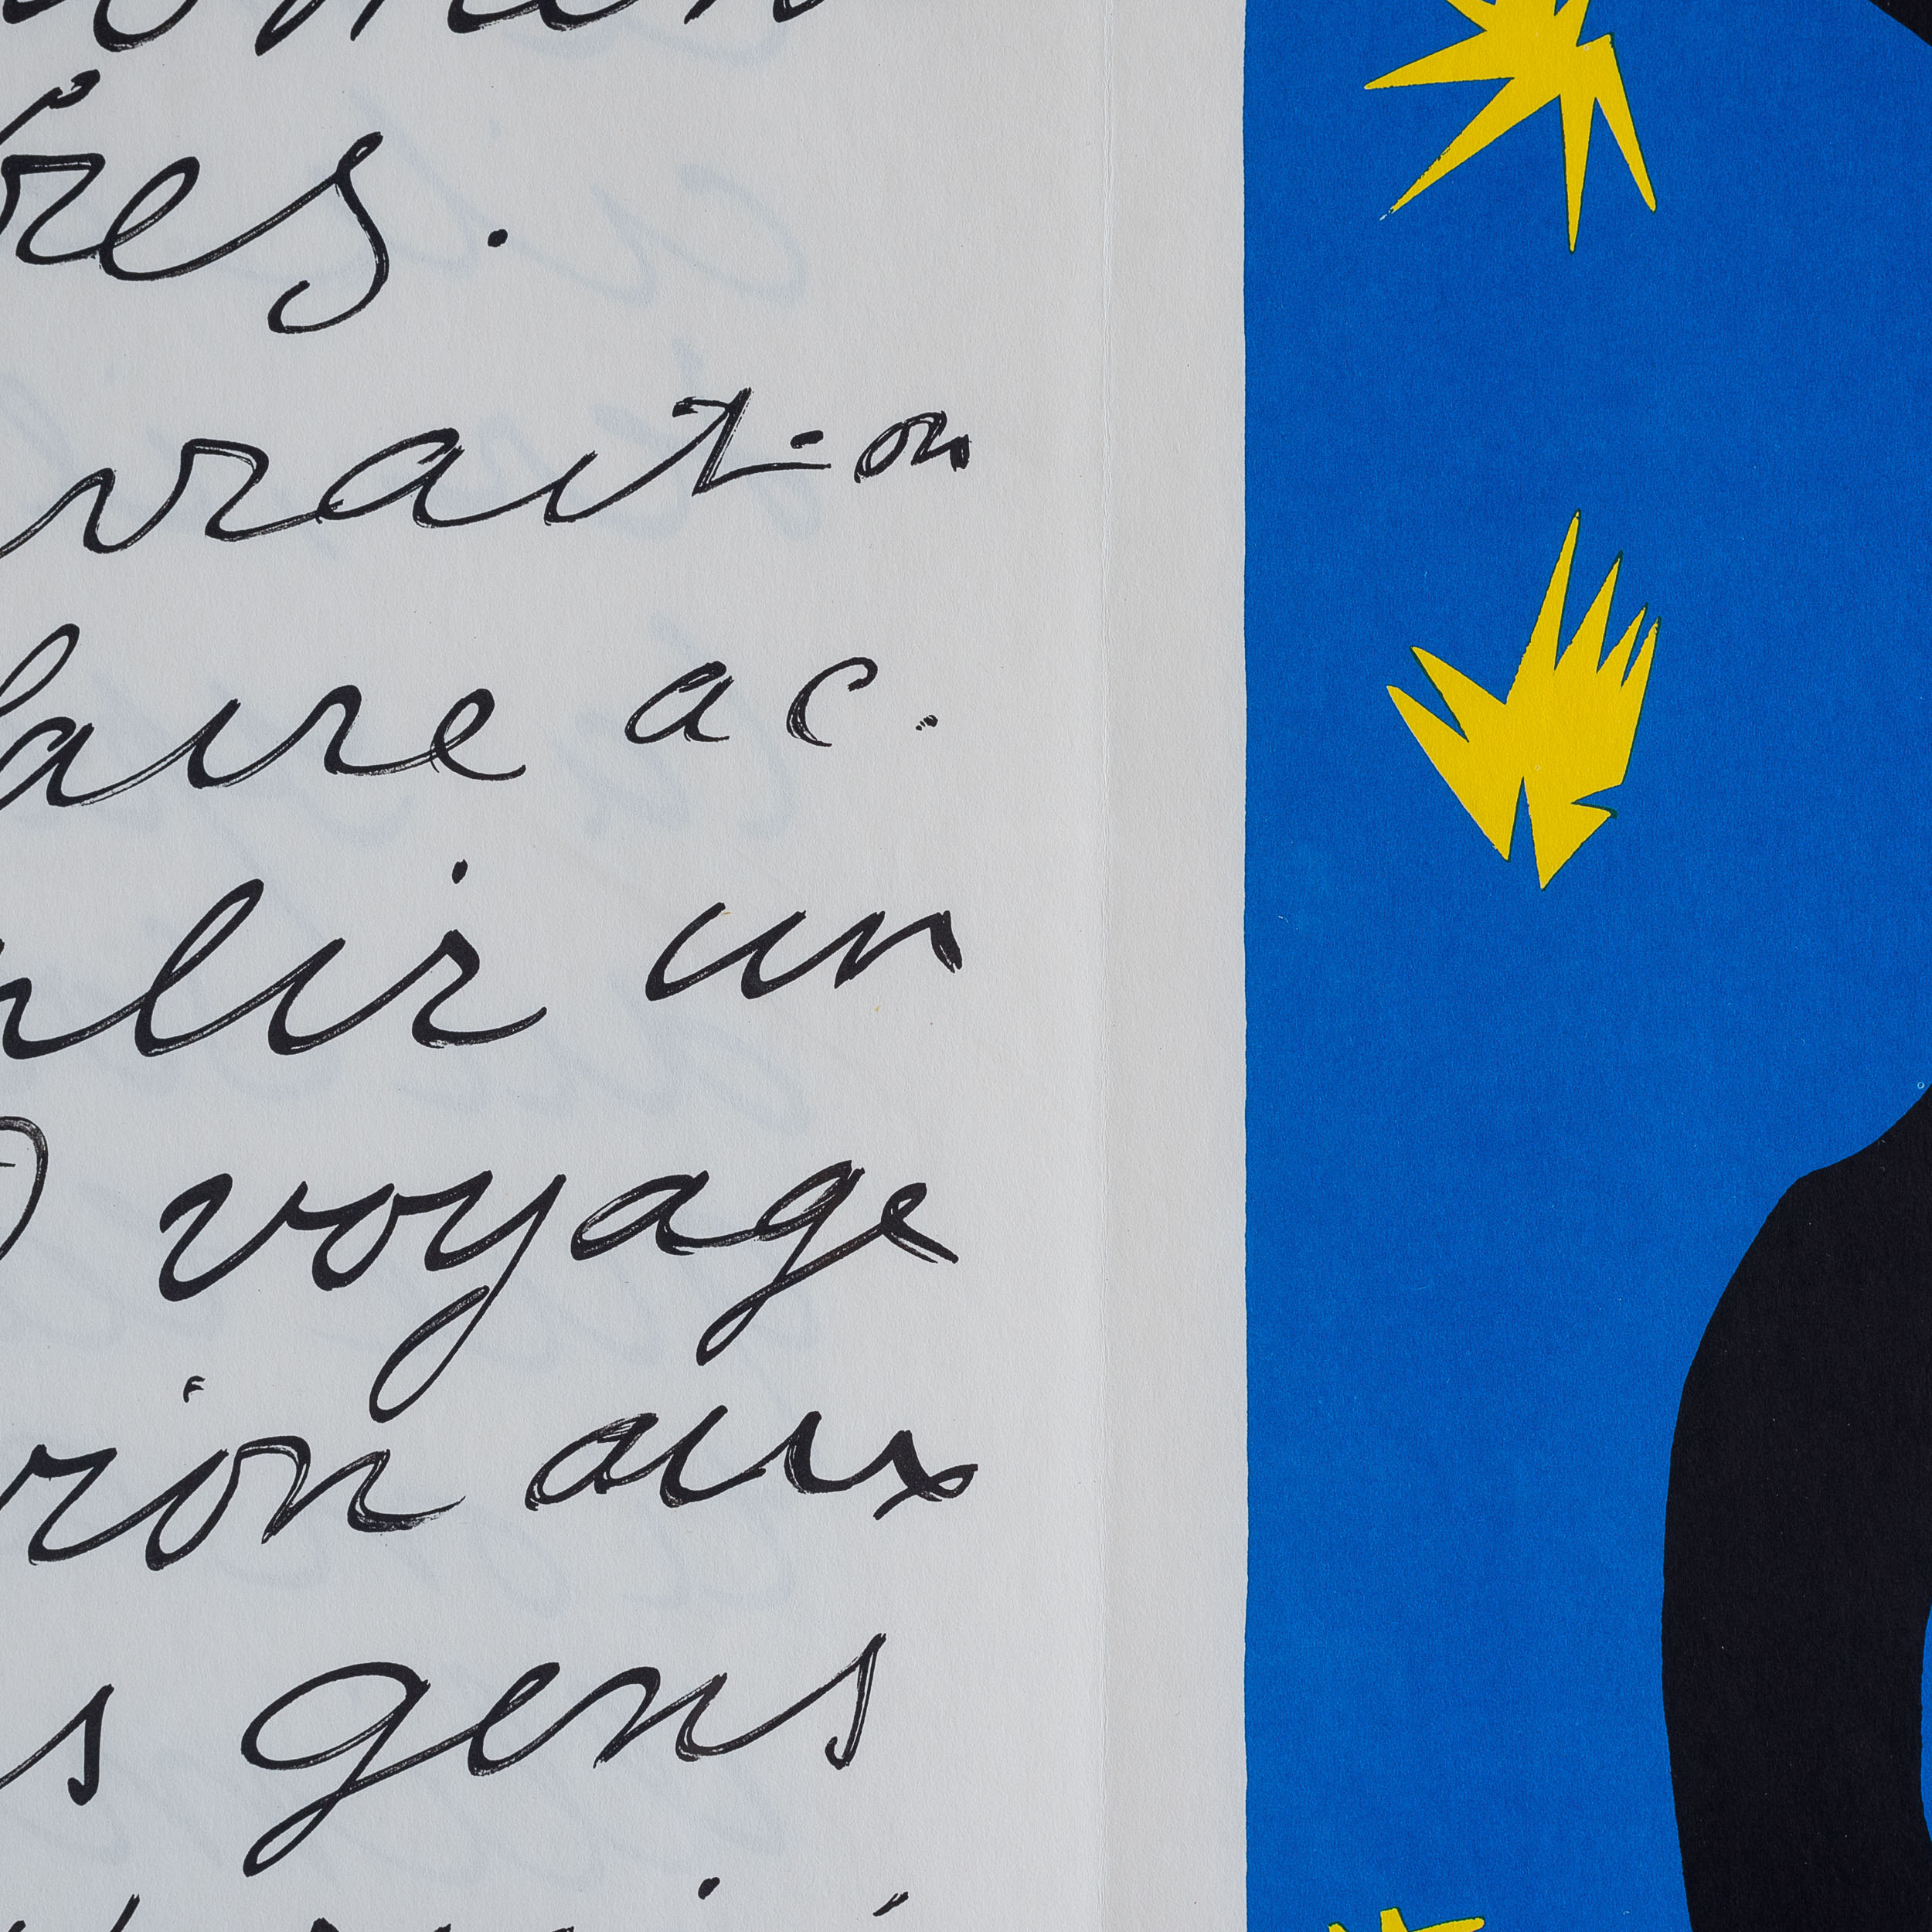 res.
vrait-on
aire ac.
lir un
voyage
rion aux
s gens